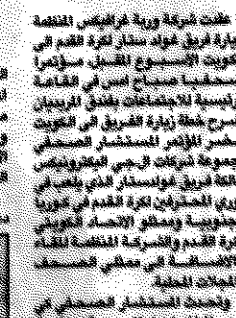 عقدت شركة وربة غرافيكس المنظمة
زيارة فريق غولد ستار لكرة القدم الى
الكويت الاسبوع المقبل مؤتمرا
صحفيا صباح امس في القاعة
الرئيسية للاجتماعات بفندق المريديان
لشرح خطة زيارة الفريق الى الكويت
حضر المؤتمر المستشار الصحفي
لمجموعة شركات ال جي اليكترونيكس
مالكة فريق غولدستار الذي يلعب في
دوري المحترفين لكرة القدم في كوريا
الجنوبية وممثلو الاتحاد الكويتي
لكرة القدم والشركة المنظمة للقاء
بالاضافة الى ممثلي الصحف
والمجلات المحلية
وتحدث المستشار الصحفي في